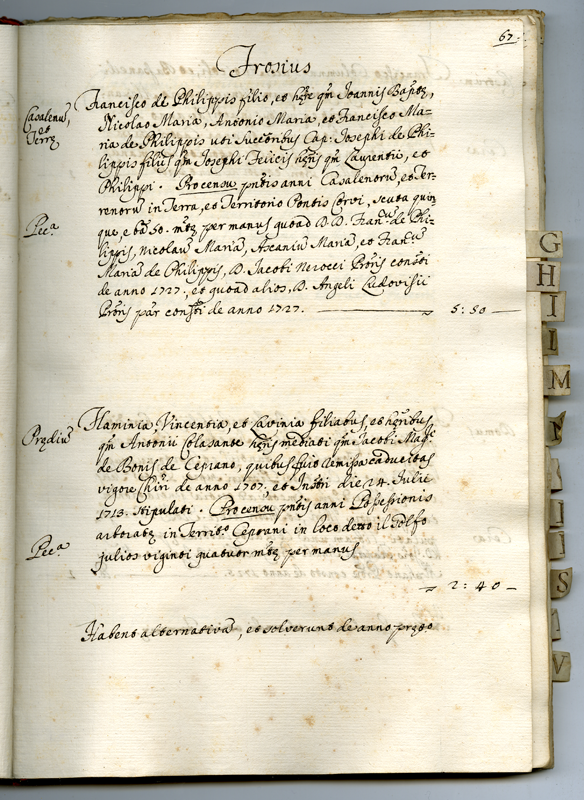 67.
Frosius
Casalenus,
et
Terre
Francisco de Philippis filio, et hęde qm̄ Joannis Baptę,
Nicolao Maria, Antonio Maria, et Francisco Ma-
ria de Philippis uti Succribus Cap: Josephi de Phi-
lippis filiis qm̄ Josephi Felicis hędis qm̄ Laurentii, et
Philippi. Pro censu pntis anni Casalenorū, et Ter-
renorū in Terra, et Territorio Pontis Corvi, scuta quin
Pec.ª
que, e bā: 50. mtę per manus quoad D. D. Franm̄ de Phi-
lippis, Nicolaū Mariā, Ascaniū Mariā, et Francū
Mariā de Philippis, D. Jacobi Nerocci Prōris consti
de anno 1727. et quoad alios, D. Angeli Ludovisii
Prōris par consti de anno 1727. 5: 50
Prędiū
Flaminia Vincentia, et Lavinia filiabus, et hędibus
qm̄ Antonii Colasante hędis mediati qm̄ Jacobi Mag.
de Bonis de Ceprano, quibus fuit remissa caducitas
vigore Chiri de anno 1707. et Instri die 24. Julii
1713. stipulati. Pro censu pntis anni Possessionis
arboratę in Territ.º Ceprani in loco detto il Golfo
Pec.ª
julios viginti quatuor mtę per manus
2: 40
Habent alternativā, et solverunt de anno prędto